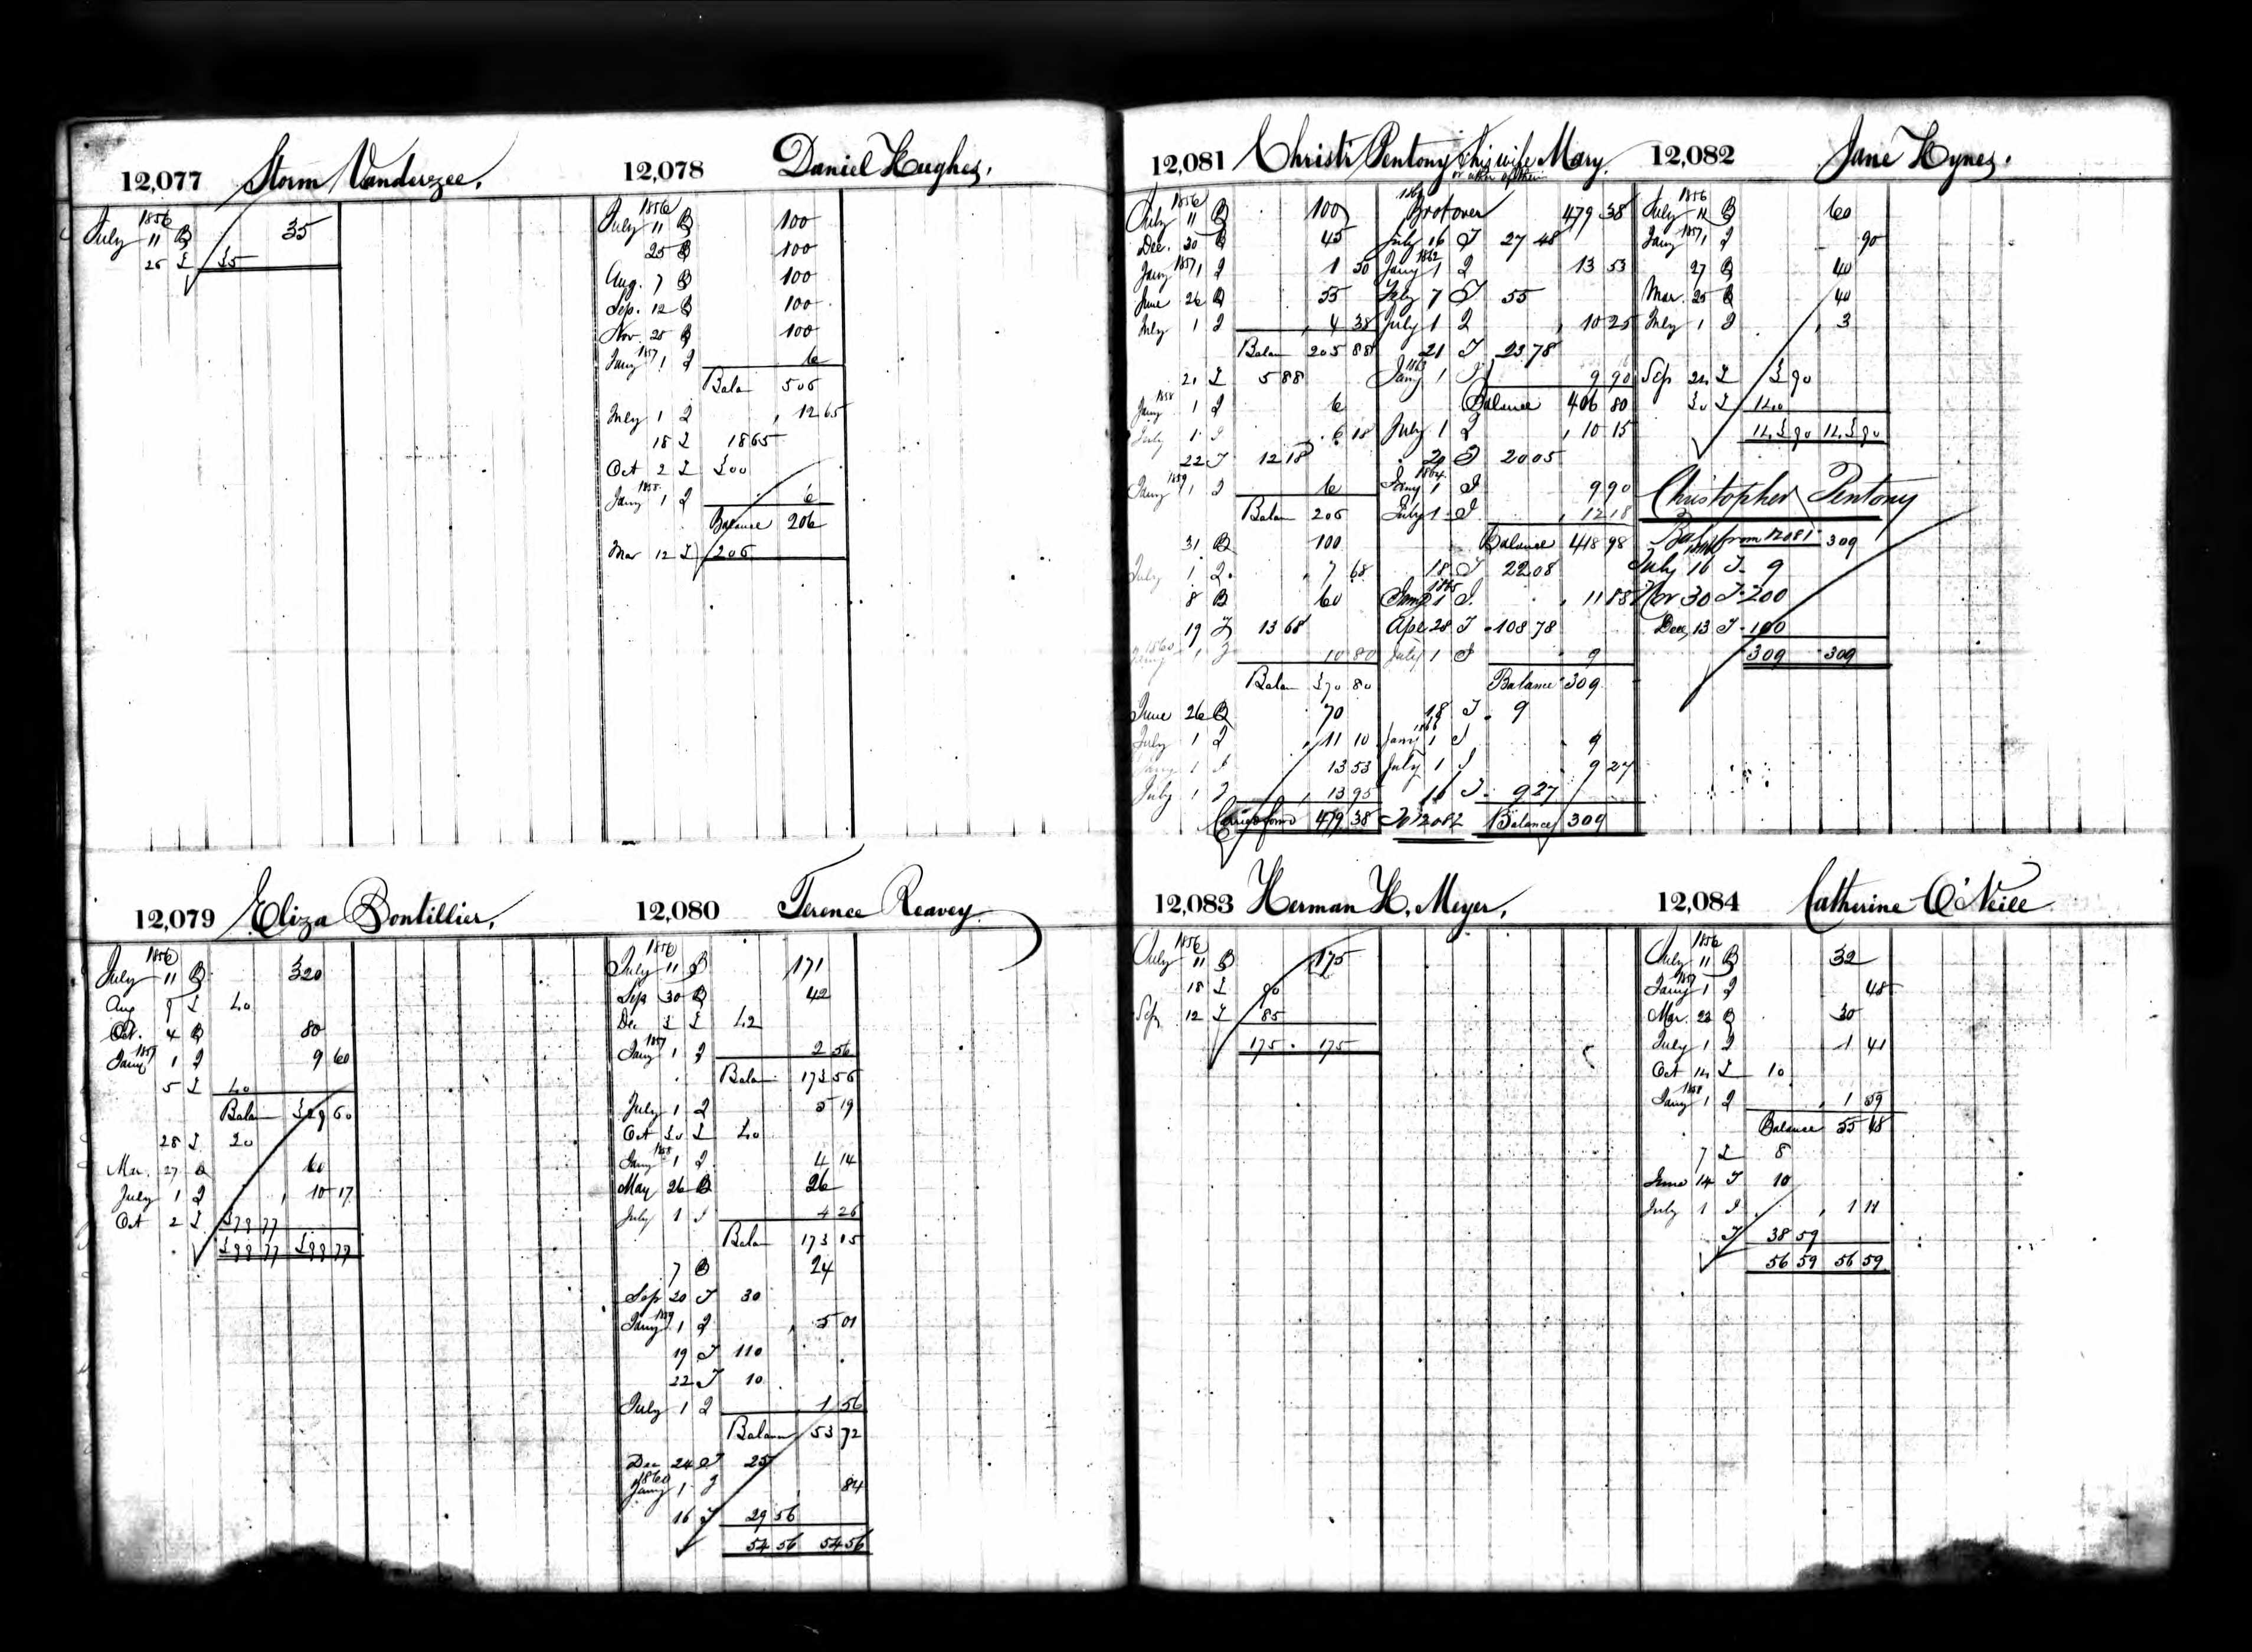 12,077 Storm Vanderzee.
1856
July 11 B 35
25 I 35
12,078 Daniel Hughes.
1856
July 11 B 100
25 B 100
Aug. 7 B 100
Sep. 12 B 100
Nov. 25 B 100
1857
Jany 1 I 6
Balan 506
July 1 I 12 65
18 I 18 65
Oct 2 I 300
1858
Jany 1 I 6
Balance 206
Mar 12 I 206
12,079 Eliza Bontillier.
1856
July 11 B 320
Aug 9 I 40
Oct. 4 B 80
1857
Jany 1 I 9 60
5 I 40
Balan 329 60
28 I 20
Mar. 27 B 60
July 1 I 10 17
Oct 2 I 379 77
399 77 399 77
12,080 Terence Reavey.
1856
July 11 B 171
Sep 30 B 42
Dec 3 I 42
1857
Jany 1 I 2 56
Balan 173 56
July 1 I 5 19
Oct 30 I 40
1858
Jany 1 I 4 14
May 26 B 26
July 1 I 4 26
Balan 173 15
7 B 24
Sep 20 I 30
1859
Jany 1 I 5 01
19 I 110
22 I 10
July 1 I 1 56
Balann 53 72
Dec 24 I 25
1860
Jany 1 I 84
16 I 29 56
54 56 54 56
12,081 Christr Pentony & his wife Mary.
or either of them
1856
July 11 B 100
Dec. 30 B 45
1857
Jany 1 I 1 50
June 26 B 55
July 1 I 4 38
Balan 205 88
21 I 5 88
1858
Jany 1 I 6
July 1 I 6 18
22 I 12 18
1859
Jany 1 I 6
Balan 206
31 B 100
July 1 I 7 68
8 B 60
19 I 13 68
1860
Jany 1 I 10 80
Balan 370 80
June 26 B 70
July 1 I 11 10
Jany 1 I 13 53
July 1 I 13 95
Carried forwd 479 38
Brot over 479 38
July 16 I 27 48
1862
Jany 1 I 13 53
Feby 7 I 55
July 1 I 10 25
21 I 23 78
1863
Jany 1 I 9 90
Balance 406 80
July 1 I 10 15
20 I 20 05
1864
Jany 1 I 9 90
July 1 I 12 18
Balance 418 98
18 I 22 08
1865
Jany 1 I 11 88
Apl 28 I 108 78
July 1 I 9
Balance 309
18 I 9
1866
Jany 1 I 9
July 1 I 9 27
16 I 9 27
To 12082 Balance 309
12,082 Jane Hynes.
1856
July 11 B 60
1857
Jany 1 I 90
27 B 40
Mar. 25 B 40
July 1 I 3
Sep 24 I 3 90
30 I 140
143 90 143 90
Christopher Pentony
Bal from 12081 309
July 16 I 9
Nov 30 I 200
Dec 13 I 100
309 309
12,083 Herman H. Meyer.
1856
July 11 B 175
18 I 90
Sep 12 I 85
175 175
12,084 Catherine O'Neill
1856
July 11 B 32
1857
Jany 1 I 48
Mar. 23 B 30
July 1 I 1 41
Oct 14 I 10
1858
Jany 1 I 1 59
Balance 55 48
7 I 8
June 14 I 10
July 1 I 1 11
I 38 59
56 59 56 59